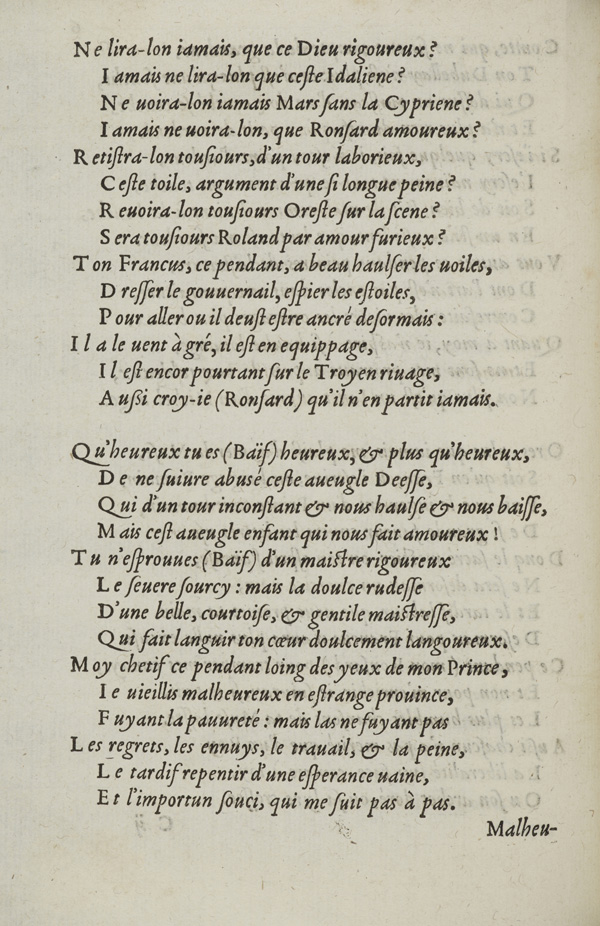 Ne lira-lon iamais, que ce Dieu rigoureux?
Iamais ne lira-lon que ceſte Idaliene?
Ne uoira-lon iamais Mars ſans la Cypriene?
Iamais ne uoira-lon, que Ronſard amoureux?
Retiſtra-lon touſiours, d'un tour laborieux,
Ceſte toile, argument d'une ſi longue peine?
Reuoira-lon touſiours Oreſte ſur la ſcene?
Sera touſiours Roland par amour furieux?
Ton Francus, ce pendant, a beau haulſer les uoiles,
Dreſſer le gouuernail, eſpier les eſtoiles,
Pour aller ou il deuſt eſtre ancré deſormais:
Il a le uent à gré, il eſt en equippage,
Il eſt encor pourtant ſur le Troyen riuage,
Außi croy-ie (Ronſard) qu'il n'en partit iamais.
Qu'heureux tu es (Baïf) heureux, & plus qu'heureux,
De ne ſuiure abusé ceſte aueugle Deeſſe,
Qui d'un tour inconſtant & nous haulſe & nous baiſſe,
Mais ceſt aueugle enfant qui nous fait amoureux!
Tu n'eſprouues (Baïf) d'un maiſtre rigoureux
Le ſeuere ſourcy: mais la doulce rudeſſe
D'une belle, courtoiſe, & gentile maiſtreſſe,
Qui fait languir ton cœur doulcement langoureux.
Moy chetif ce pendant loing des yeux de mon Prince,
Ie uieillis malheureux en eſtrange prouince,
Fuyant la pauureté: mais las ne fuyant pas
Les regrets, les ennuys, le trauail, & la peine,
Le tardif repentir d'une eſperance uaine,
Et l'importun ſouci, qui me ſuit pas à pas.
Malheu-